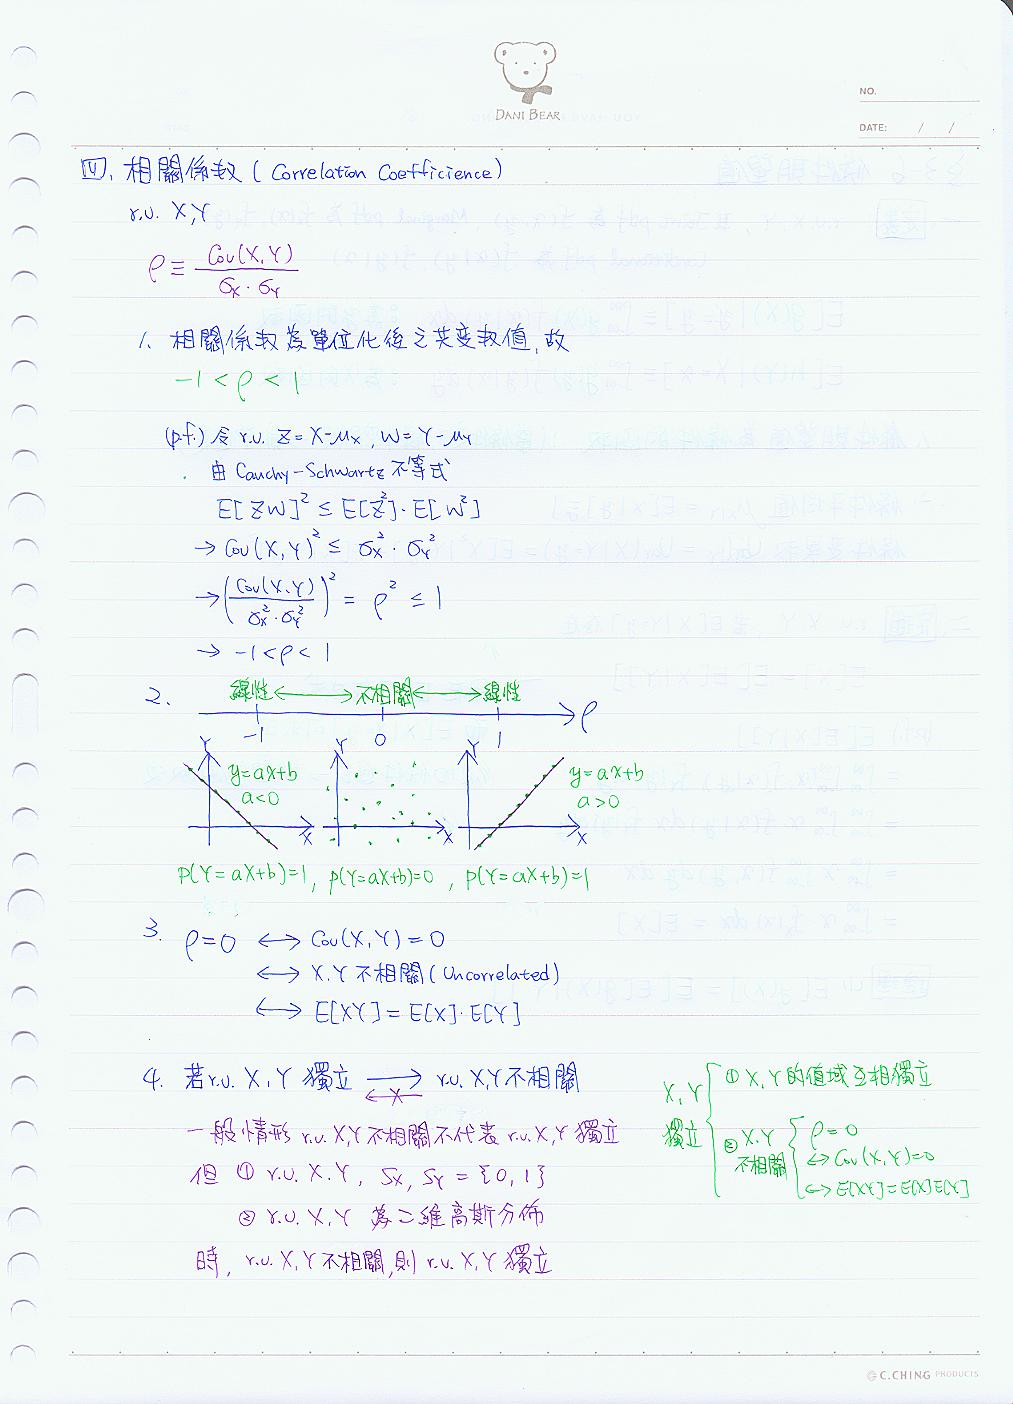 DANI BEAR
NO.
DATE: / /
四. 相關係數 ( Correlation Coefficience )
r.v. X,Y
ρ ≡ Cov(X,Y) / σX · σY
1. 相關係數為單位化後之共变數值, 故
-1 < ρ < 1
(p.f.) 令 r.v. Z = X-μX , W = Y-μY
由 Cauchy-Schwartz 不等式
E[ZW]² ≤ E[Z²]·E[W²]
→ Cov(X,Y)² ≤ σX² · σY²
→ (Cov(X,Y) / σX²·σY²)² = ρ² ≤ 1
→ -1<ρ<1
2. 線性 ←→ 不相關 ←→ 線性
-1 0 1 ρ
Y y=ax+b a<0 X
Y X
Y y=ax+b a>0 X
P(Y=aX+b)=1, P(Y=aX+b)=0, P(Y=aX+b)=1
3. ρ=0 ↔ Cov(X,Y)=0
↔ X.Y 不相關 (Uncorrelated)
↔ E[XY] = E[X]·E[Y]
4. 若 r.v. X,Y 獨立 → r.v. X,Y 不相關
← X
一般情形 r.v. X,Y 不相關不代表 r.v. X,Y 獨立
但 ① r.v. X.Y, SX, SY = {0,1}
② r.v. X,Y 為二維高斯分佈
時, r.v. X,Y 不相關, 則 r.v. X,Y 獨立
X,Y 獨立
① X,Y 的值域互相獨立
② X.Y 不相關
ρ=0
↔ Cov(X,Y)=0
↔ E[XY]=E[X]E[Y]
C.CHING PRODUCTS